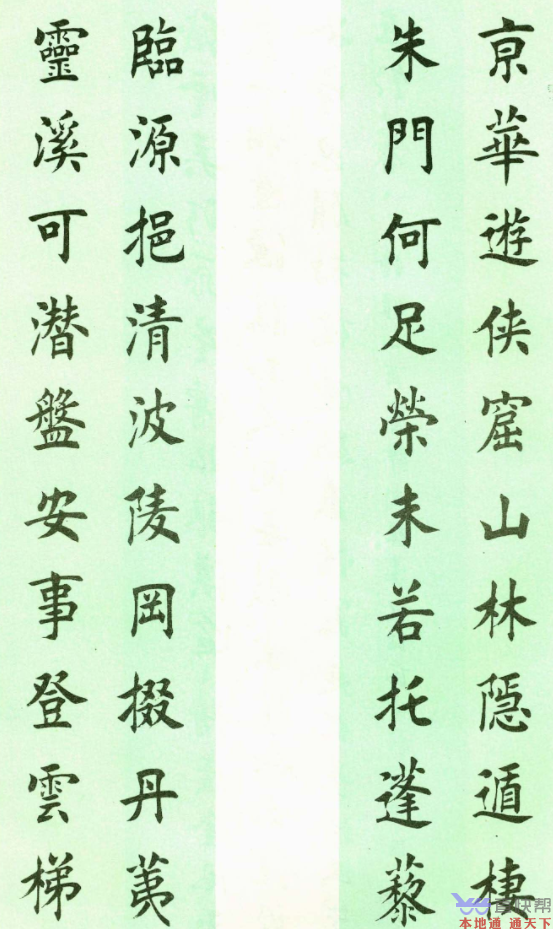 京華遊侠窟山林隱遁棲
朱門何足榮未若托蓬藜
臨源挹清波陵岡掇丹荑
靈溪可潜盤安事登雲梯
本地通 通天下